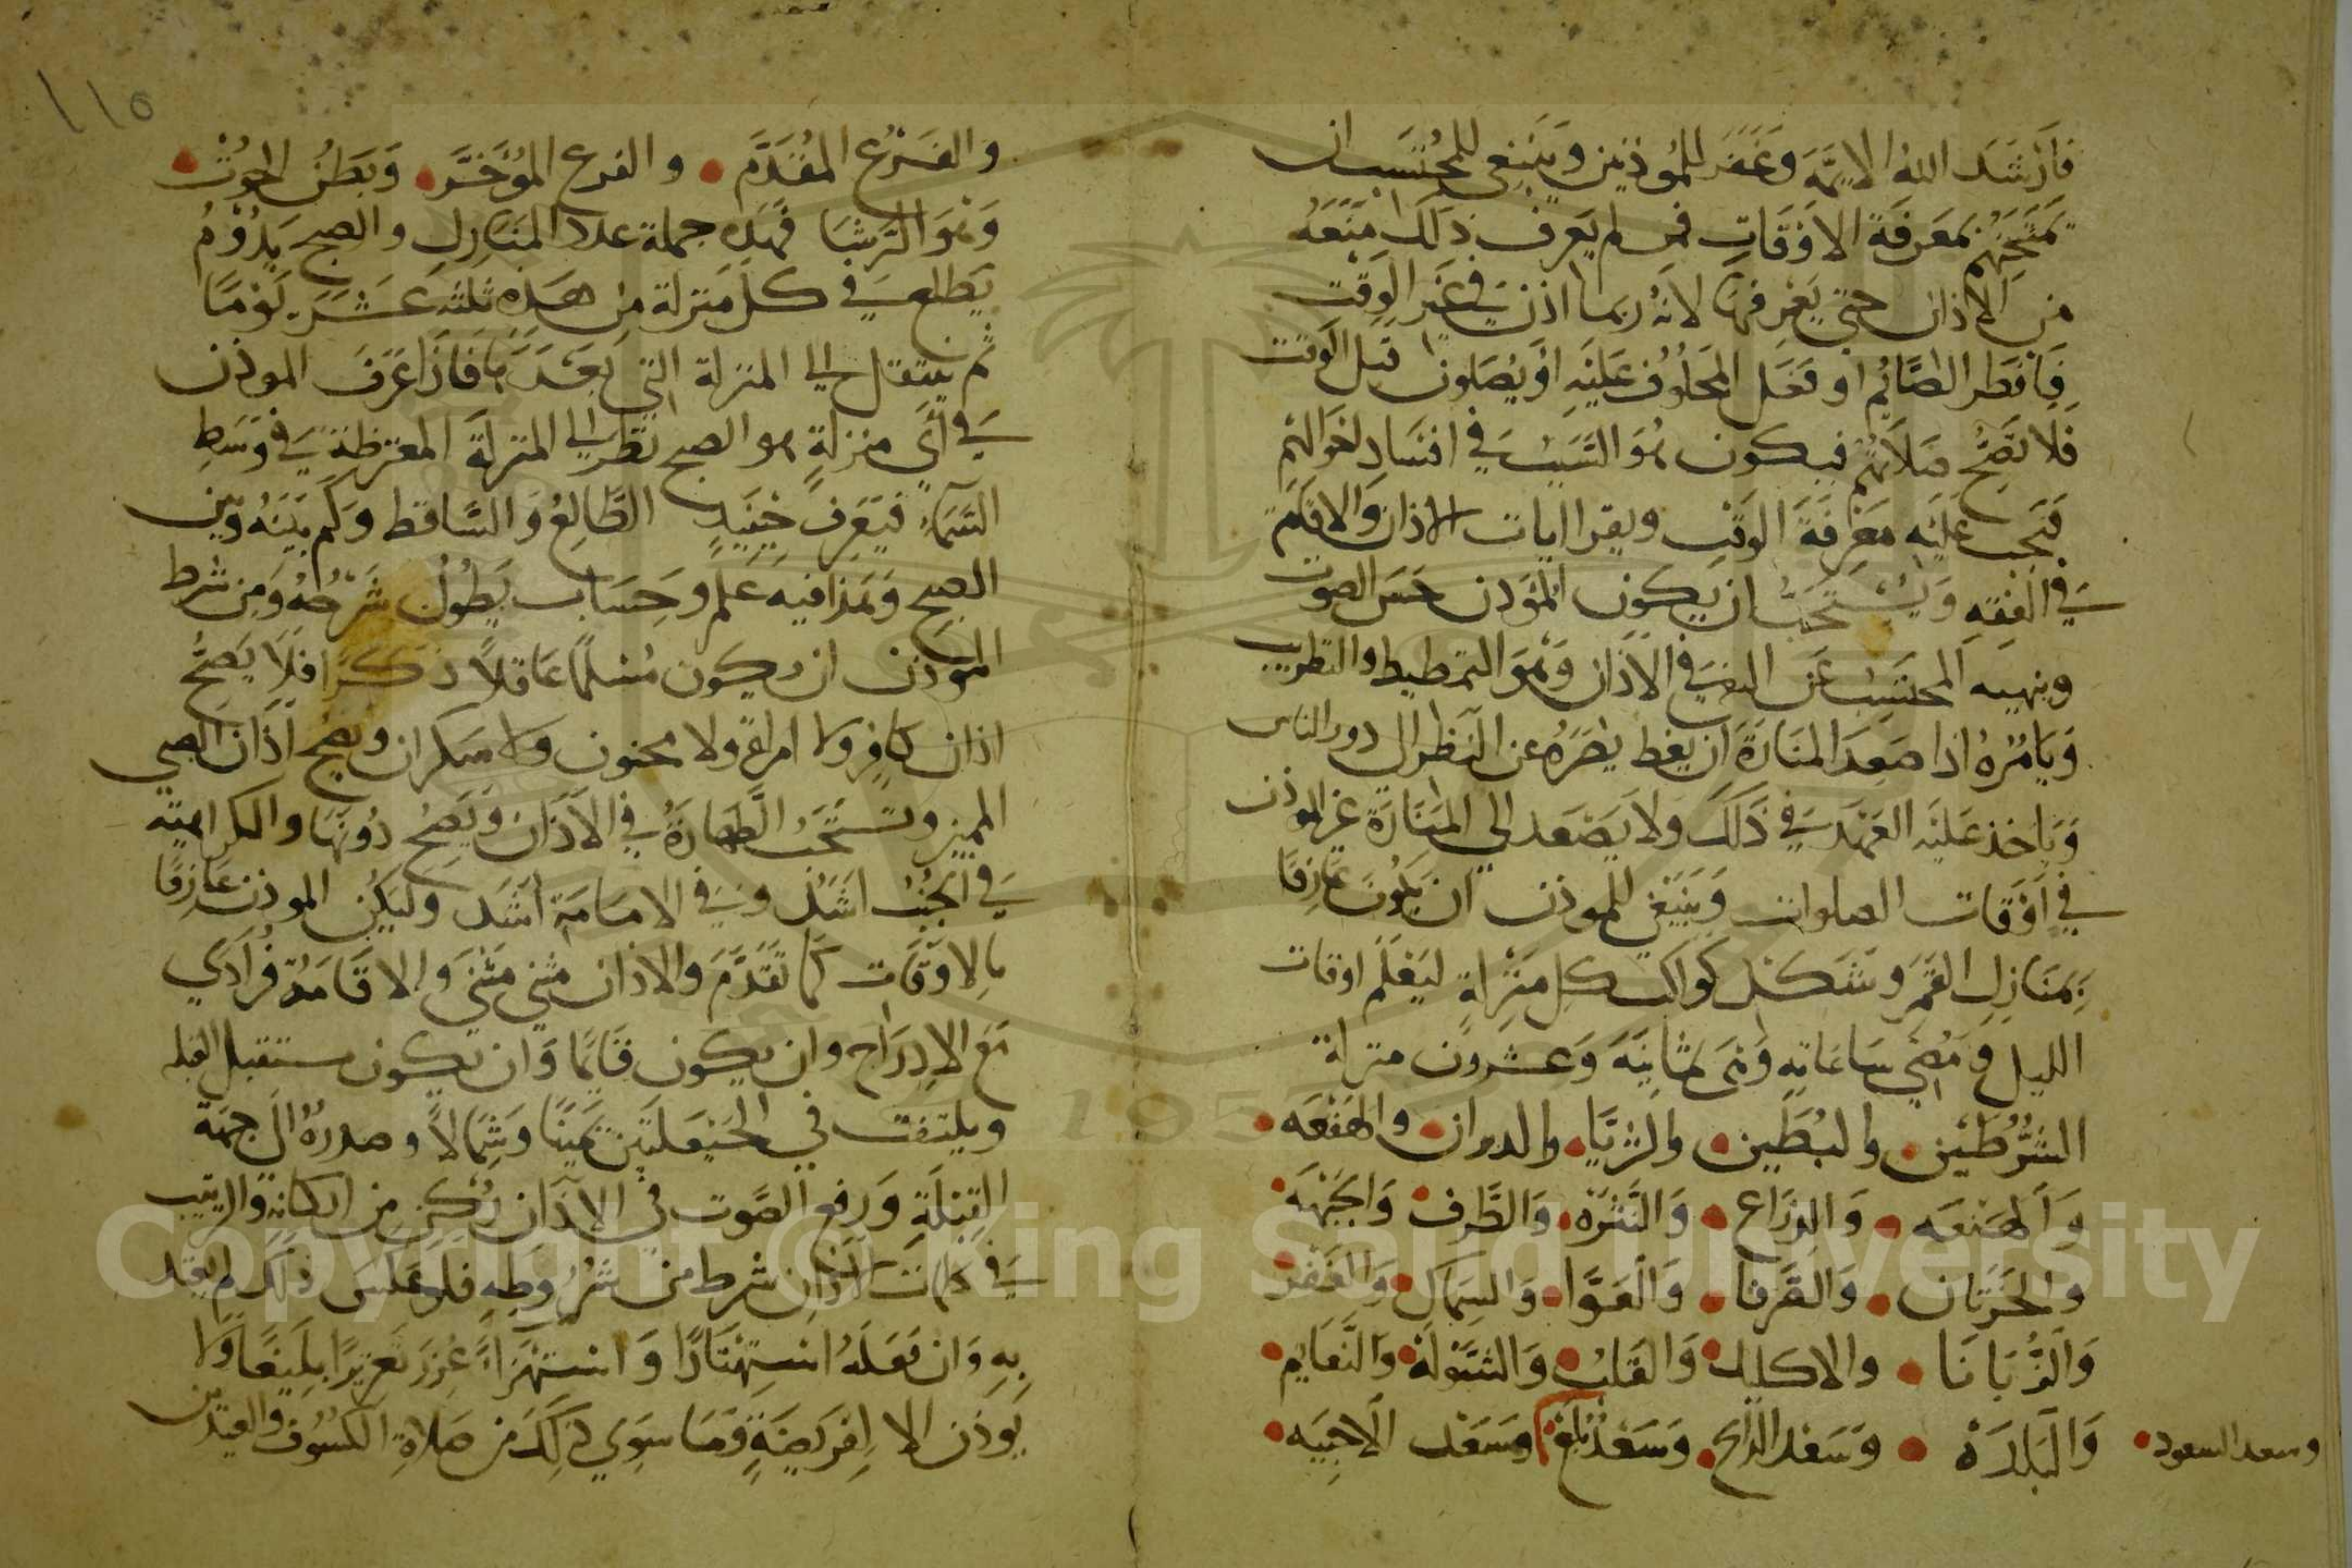 فَأَرْشَدَ اللهُ الايمَّةَ وَغَفَرَ للمُوذنين وَيَنبَغى للمحُتَسَب ان
يَمتَحِنَهُم بمَعَرفَة الاوَقَاتِ فمن لم يَعرف ذلَكَ مَنَعَهُ
من الاذان حتي يَعرفهَا لانَهُ ربما اذن في غَير الوَقت
فَافطر الصَّائمُ او فَعَل المَحلوُف عَليَهِ اوَيُصَلون قبل الوقت
فلا تَصُّحُ صَلَاتهُم فيكون هُوَ السَبب في افسَاد احوالهم
فَيَجب عَليَه مَعَرفَةَ الوقت ويقرا ابات الاذان وَالاقامَة
في الفقهِ وَيُستَحَبُّ ان يَكون المُوَذن حَسَن الصوت
وينهيه المحتَسِبُ عَن البغي في الاذَان وَهوَ التمطيط والتطريب
وَيَامُرهُ اذا صَعِدَ المنَارَةَ ان يَغط بَصَرَهُ عن النَظر الي دور الناس
وَيَاخذ عَليَه العَهَد في ذَلَكَ وَلاَ يَصَعد الي المنَارَة غير الموذن
في اَوقَات الصلوات وَيَنبَغي للموذن ان يَكُونَ عَارفًا
بمَنَازلِ القَمَر وشَكل كواكب كل مَنزلةٍ ليَعْلَم اوقات
الليل ومُضي سَاعَاته وَهيَ ثمانيَةَ وَعشرون منزلة
الشَّرُطَين والبُطَين والثريَّا والدبران والهَقعَه
وَالهَنعَه وَالذرَاع وَالنَثرَه وَالطَّرف وَالجَبهَه
والخَرَتان وَالصَّرفا وَالعَوَّا وَالسِمَاك وَالغَفر
وَالزُّبَانَا والاكليل وَالقَلبُ وَالشَوَلة وَالنَّعَايم
وَالبَلدَة وَسَعد الذابح وَسَعْد بُلَع وسَعَد الاَخبيَه
وسعد السعود
١١٥
والفَرْع المُقَدَّم والفرع المُؤَخَّر وَبَطن الحوُت
وَهوَ الرَشا فَهَذه جملة عدد المَنَازل والصبح يَدُوْمُ
يَطلع في كل مَنزلة من هَذه ثلثه عَشَرَ يَوَمًا
ثم ينتقل الي المنزلة التي بَعَدَهَا فَاذَا عَرَفَ الموذن
في أَي منزلةٍ هو الصبح نَظر الي المنزلَة المعترضة في وَسَط
السَماءِ فيَعرف حِينَيدٍ الطَّالعُ وَالسَّاقط وَكم بَينَهُ وَبَين
الصبح وَهَذا فيه عَلم وحِسَاب يَطُولُ شَرَحُهُ وَمن شرط
الموَذن ان يكون مُسلمًا عَاقلاً ذكرًا فلَا يَصُحُّ
اذان كَافر ولا امراةٍ ولا مجنون ولا سكران ويَصح اذَان الصبي
المميز وتستَحَبُ الطهَارَةُ في الاذَان وَيَصُح دُونهَا والكراهيَّه
في الجُنُب اشَدُ وفي الامَامَة اشَد وليَكُن الموذن عَارفًا
بالاوقَات كمَا تَقَدَّمَ والاذان مثني مَثنيَ وَالاقَامَة فُرَادَي
مَعَ الادِرَاج وان يكون قايمًا وَان يكون مستقبل القبله
ويلتفت في الحَيَعلَتَين يَمينًا وَشِمالاً وصدرهُ الي جهَة
القِبلَةِ وَرفع الصَّوت في الاَذَان رُكن من اركانه والترتيب
في كلمَات الاذَان شرط من شرُوطهِ فلَو عَكسَ ذلك لم يعتد
بِهِ وَان فَعَلَهُ اسِتهتَارًا وَاستهزَاءً عُزرَ تَعَزيرًا بليغًا وَلا
يُوذن الا لِفرَيضَةٍ وَمَا سِوَي ذلِكَ من صَلاةِ الكسُوف والعيدين